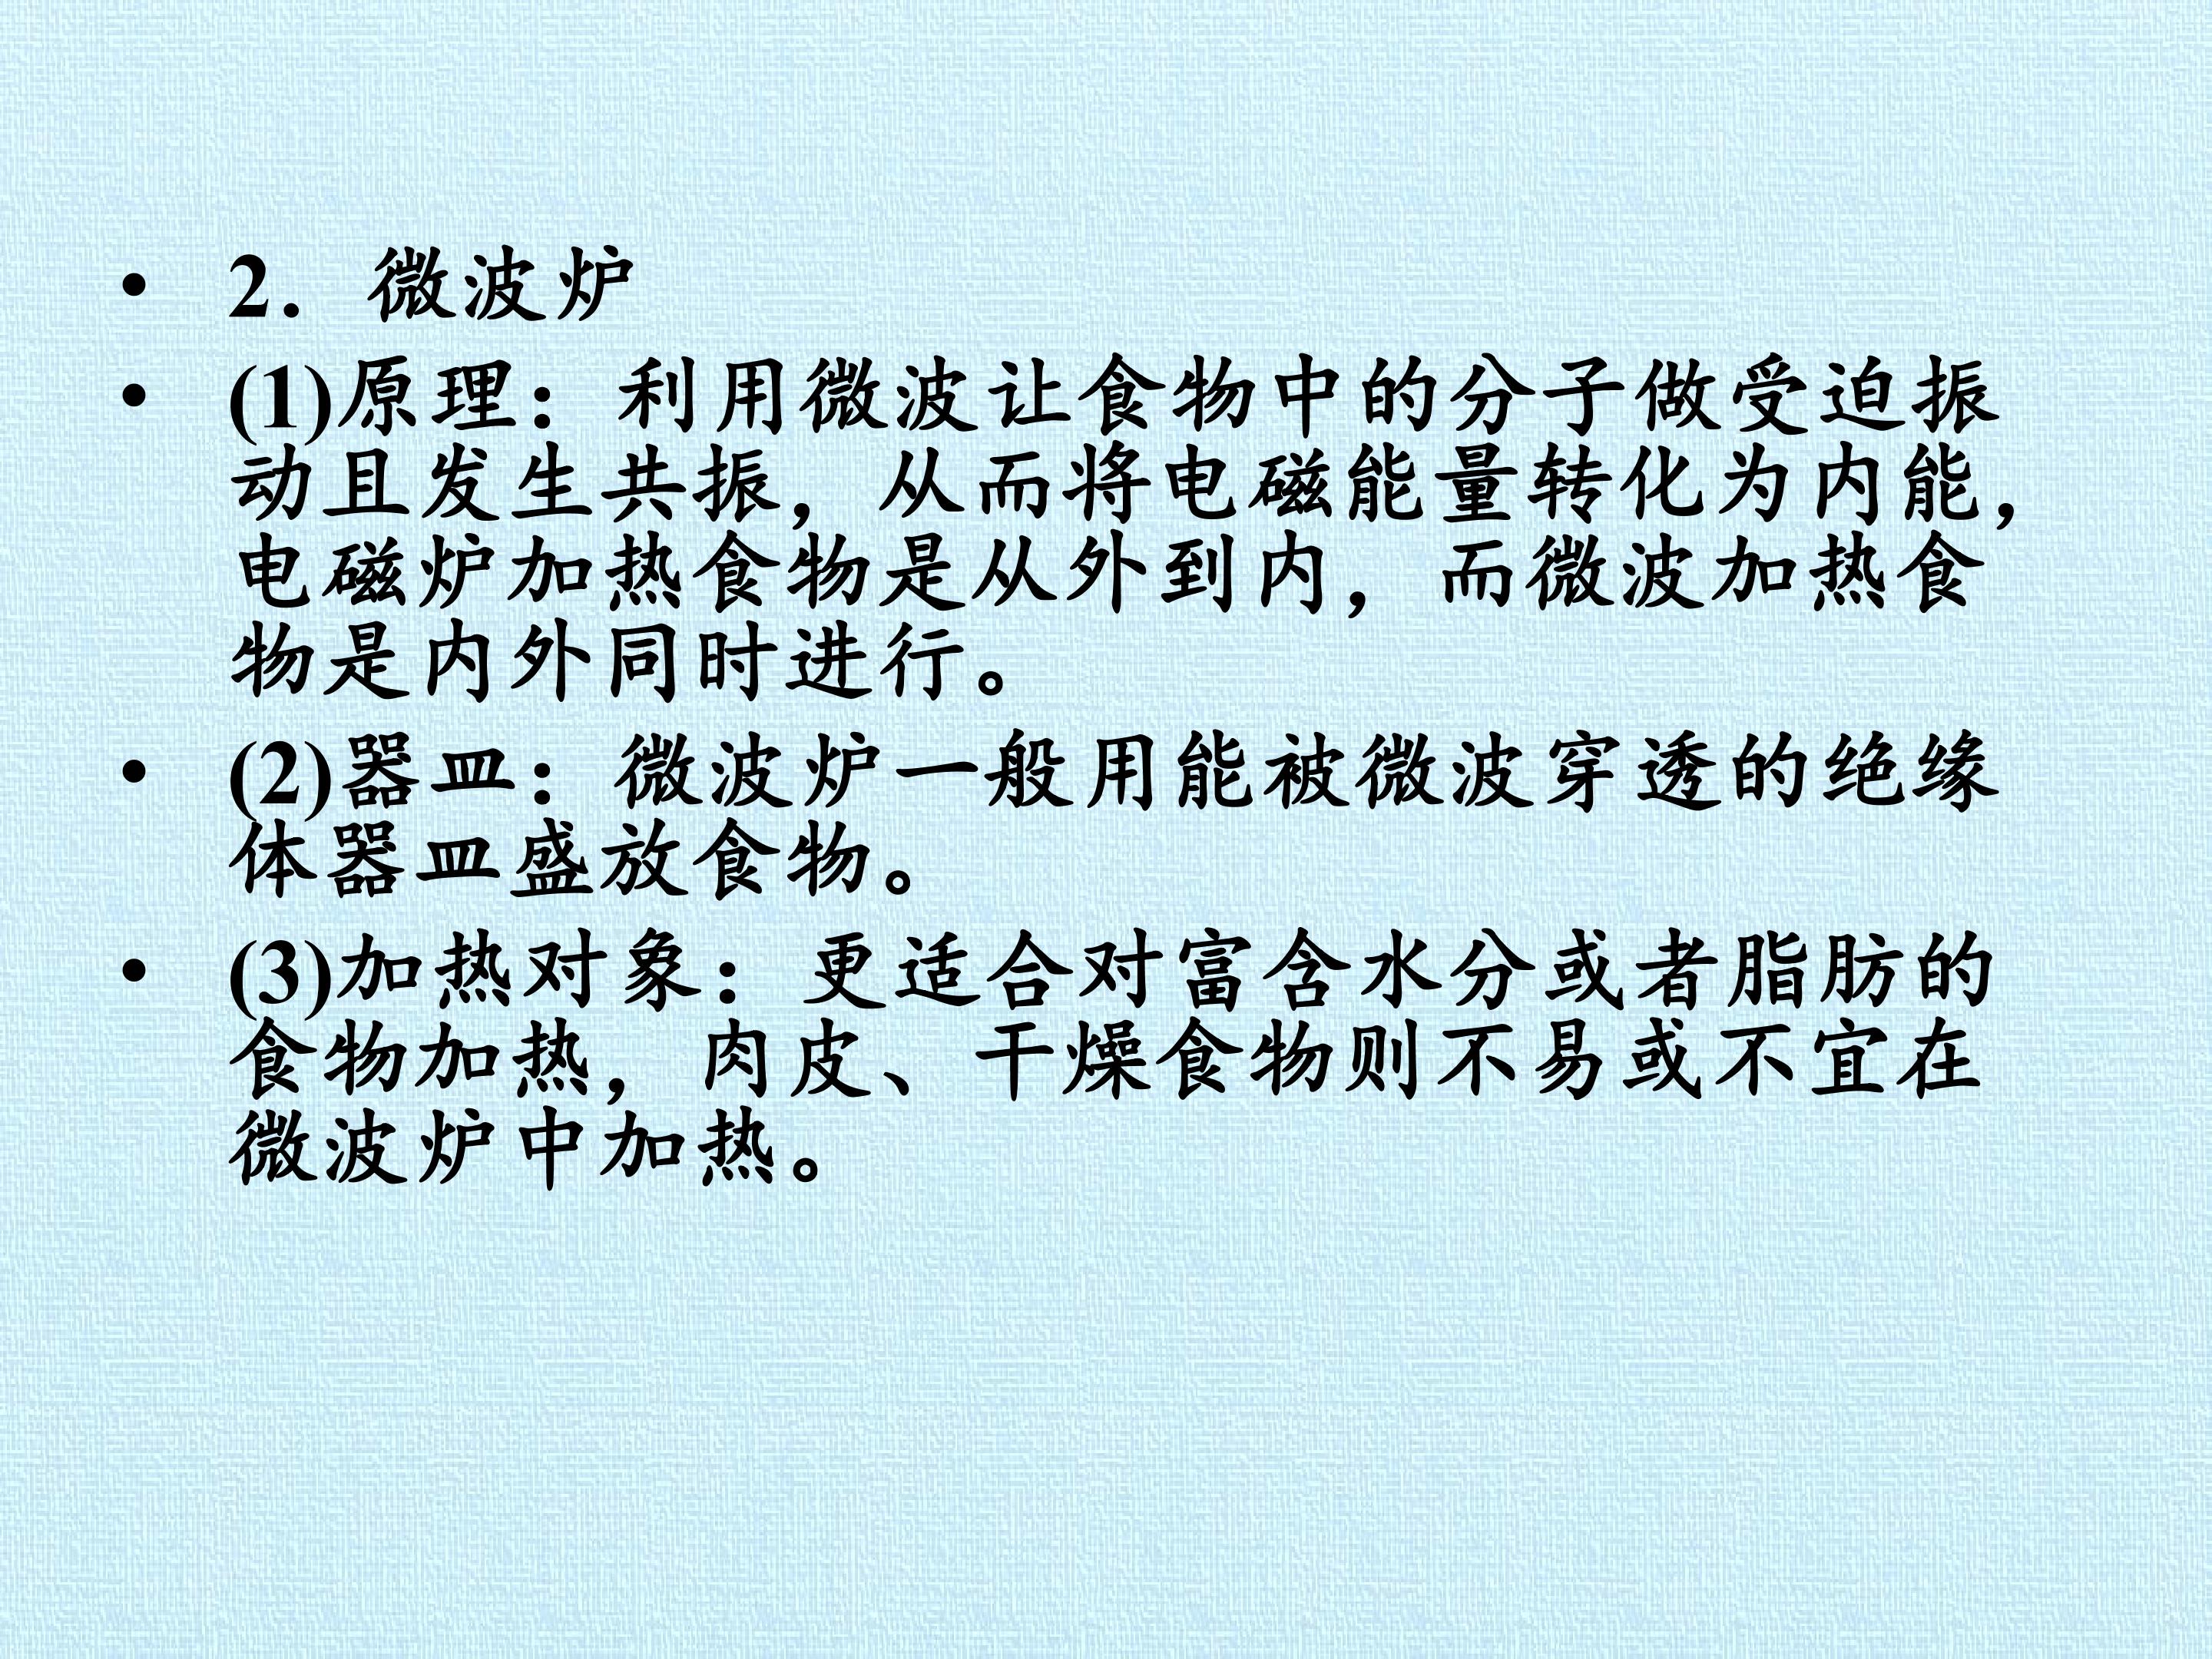 • 2．微波炉
• (1)原理：利用微波让食物中的分子做受迫振
动且发生共振，从而将电磁能量转化为内能，
电磁炉加热食物是从外到内，而微波加热食
物是内外同时进行。
• (2)器皿：微波炉一般用能被微波穿透的绝缘
体器皿盛放食物。
• (3)加热对象：更适合对富含水分或者脂肪的
食物加热，肉皮、干燥食物则不易或不宜在
微波炉中加热。